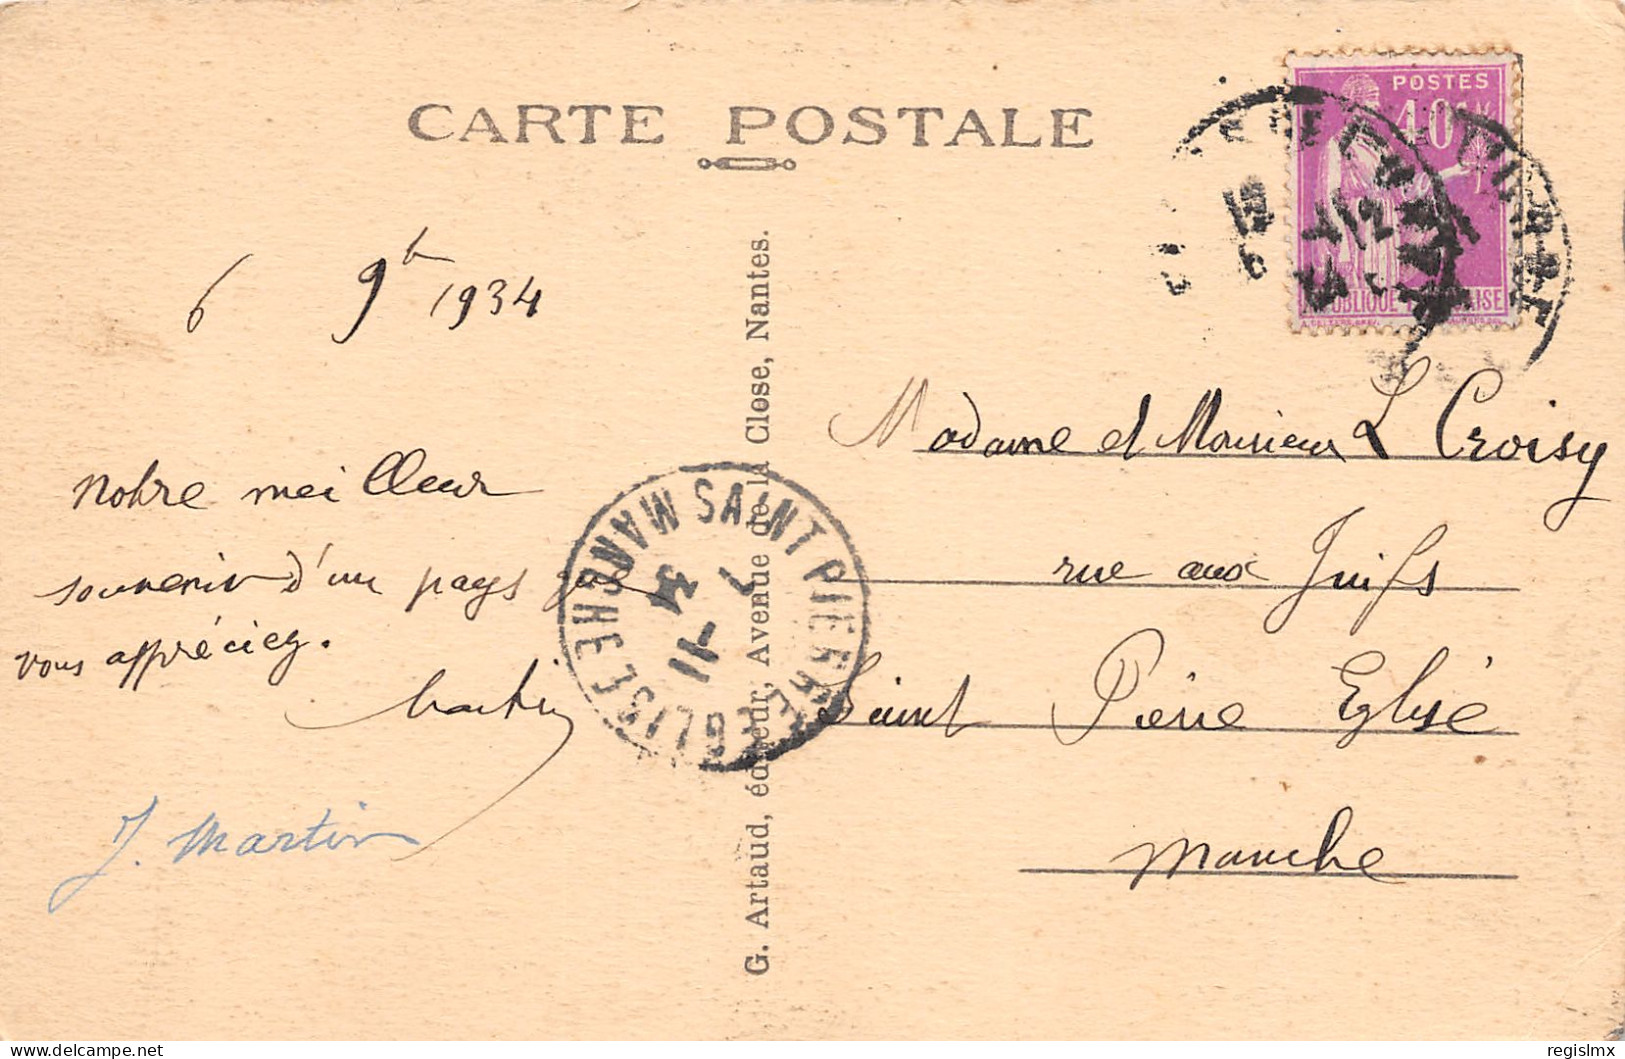 CARTE POSTALE
POSTES
40c
RÉPUBLIQUE FRANÇAISE
6 9b 1934
Notre meilleur
souvenir d'un pays que
vous appréciez.
Martin
J. Martin
SAINT PIERRE EGLISE MANCHE
7 -11
34
G. Artaud, éditeur, Avenue de la Close, Nantes.
Madame et Monsieur L Croisy
rue aux Juifs
Saint Pierre Eglise
Manche
delcampe.net
regislmx